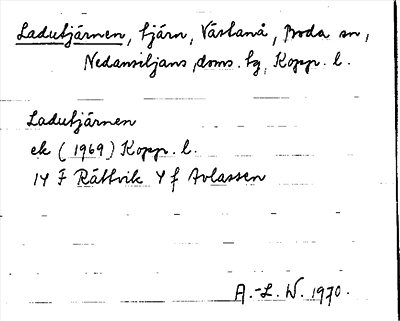 Ladutjärnen, tjärn, Västanå, Boda sn,
Nedansiljans doms. hg, Kopp. l.
Ladutjärnen
ek (1969) Kopp. l.
14 F Rättvik 4 f Avlassen
A.-L. W. 1970.